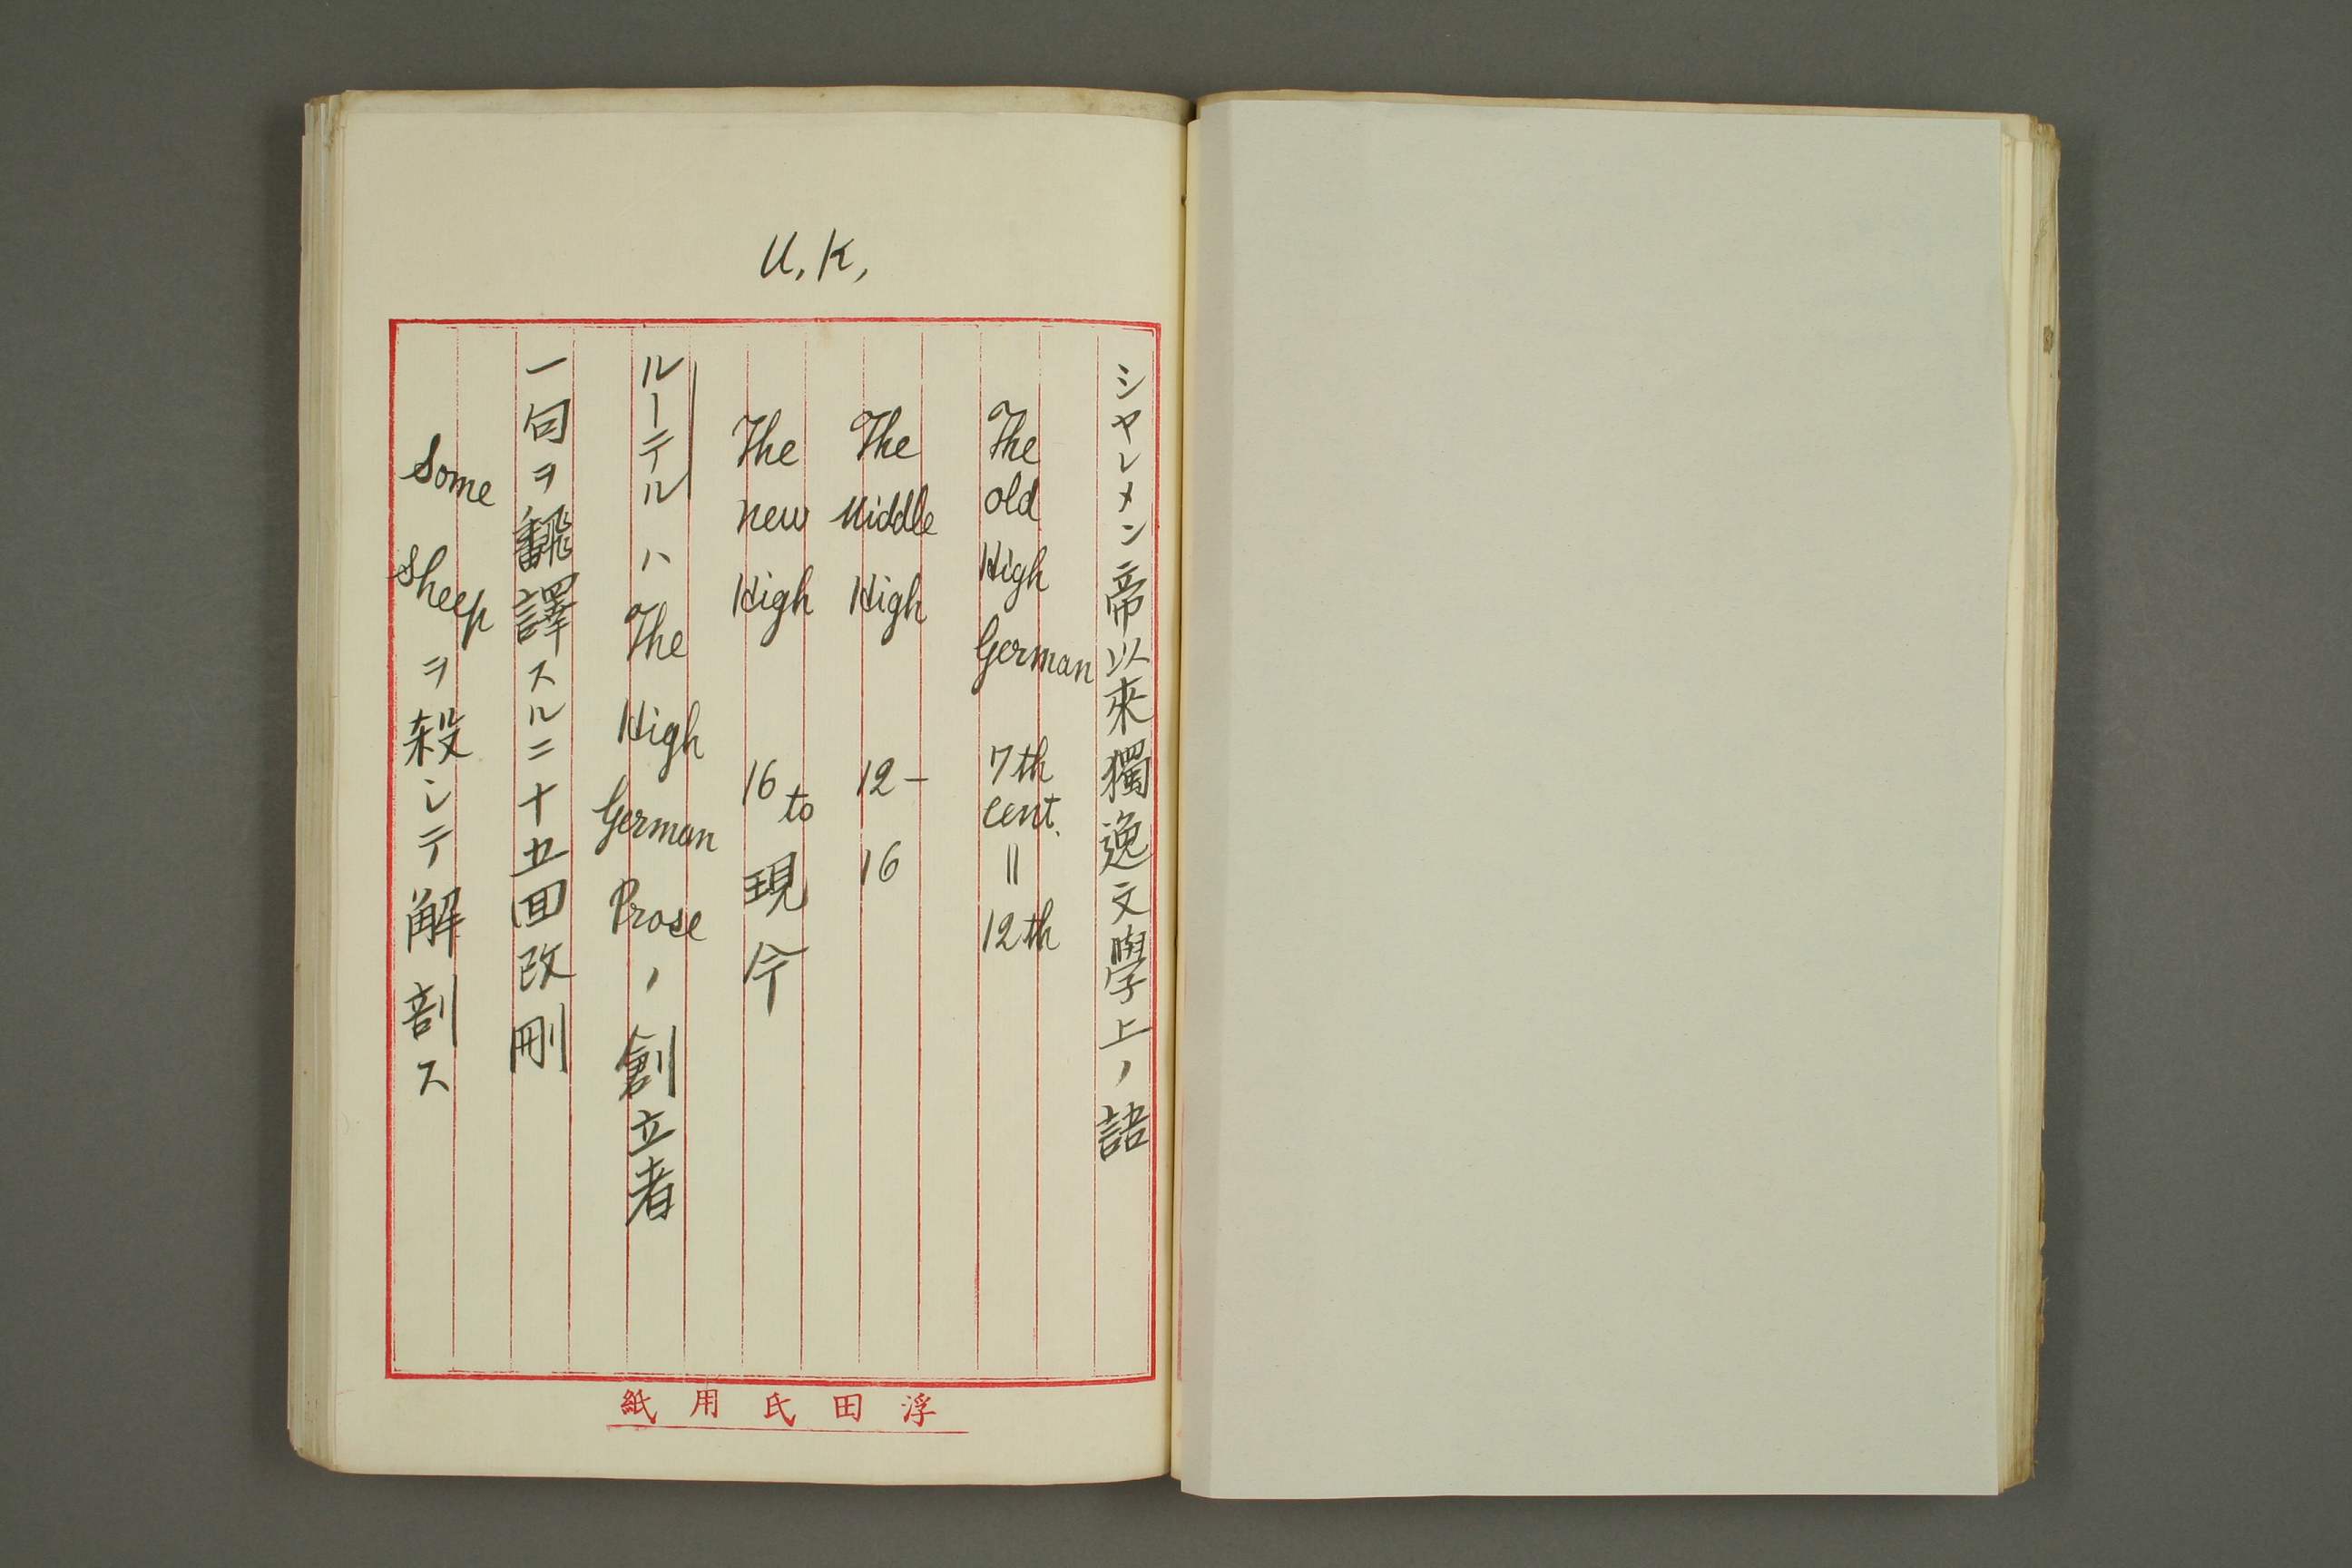 U. K,
シャレメン帝以來獨逸文學上ノ語
The old High German 7th cent. = 12th
The Middle High 12-16
The new High 16 to 現今
ルーテルハ The High German Prose ノ創立者
一句ヲ飜譯スルニ十五回改刪
Some Sheep ヲ殺シテ解剖ス
浮田氏用紙